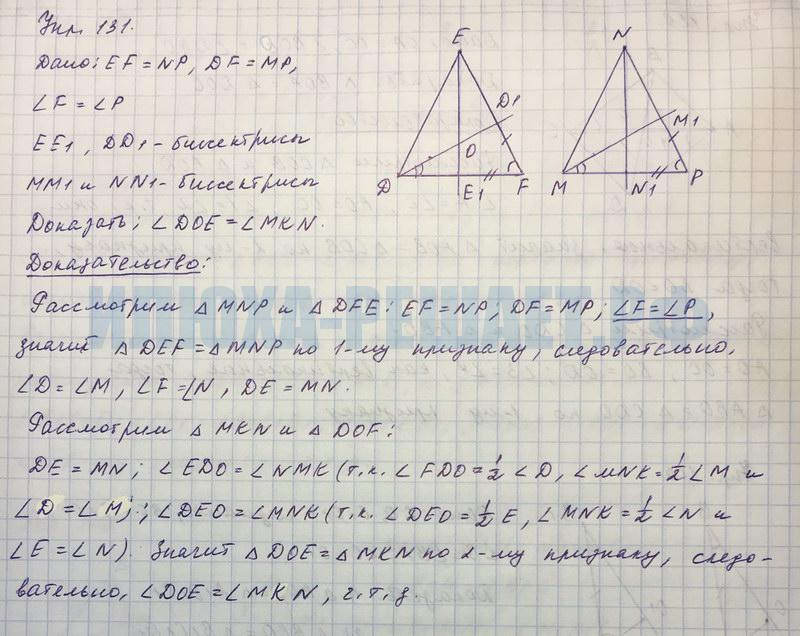 Упр. 131.
Дано: EF = NP, DF = MP,
∠F = ∠P
EE1, DD1 - биссектрисы
MM1 и NN1 - биссектрисы
Доказать: ∠DOE = ∠MKN.
Доказательство:
E
D1
O
D
E1
F
N
M1
M
N1
P
Рассмотрим △MNP и △DFE: EF = NP; DF = MP; ∠F = ∠P,
значит △DEF = △MNP по 1-му признаку, следовательно,
∠D = ∠M, ∠F = ∠N, DE = MN.
Рассмотрим △MKN и △DOF:
DE = MN; ∠EDO = ∠NMK (т.к. ∠FDO = 1/2 ∠D, ∠MNK = 1/2 ∠M и
∠D = ∠M; ∠DEO = ∠MNK (т.к. ∠DEO = 1/2 E, ∠MNK = 1/2 ∠N и
∠E = ∠N). Значит △DOE = △MKN по 2-му признаку, следо-
вательно, ∠DOE = ∠MKN, ч.т.д.